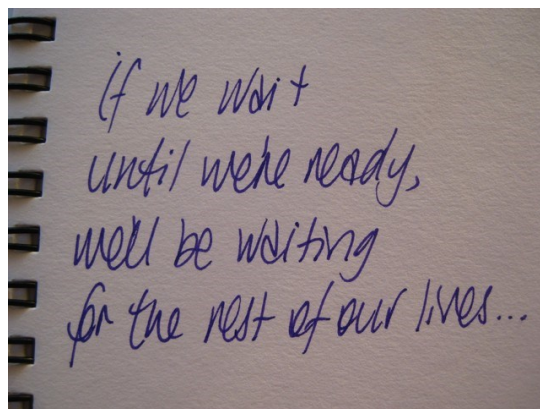 if we wait
until we're ready,
we'll be waiting
for the rest of our lives...